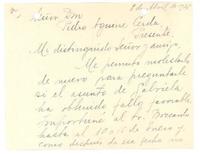 8 de Abril de 1925
Señor Don
Pedro Aguirre Cerda
Presente.
Mi distinguido Señor y amigo:
Me permito molestarle
de nuevo para preguntarle
si el asunto de Gabriela
ha obtenido fallo favorable.
Importuné al Sr.
hasta el 10 de Enero y
como después de esa fecha no